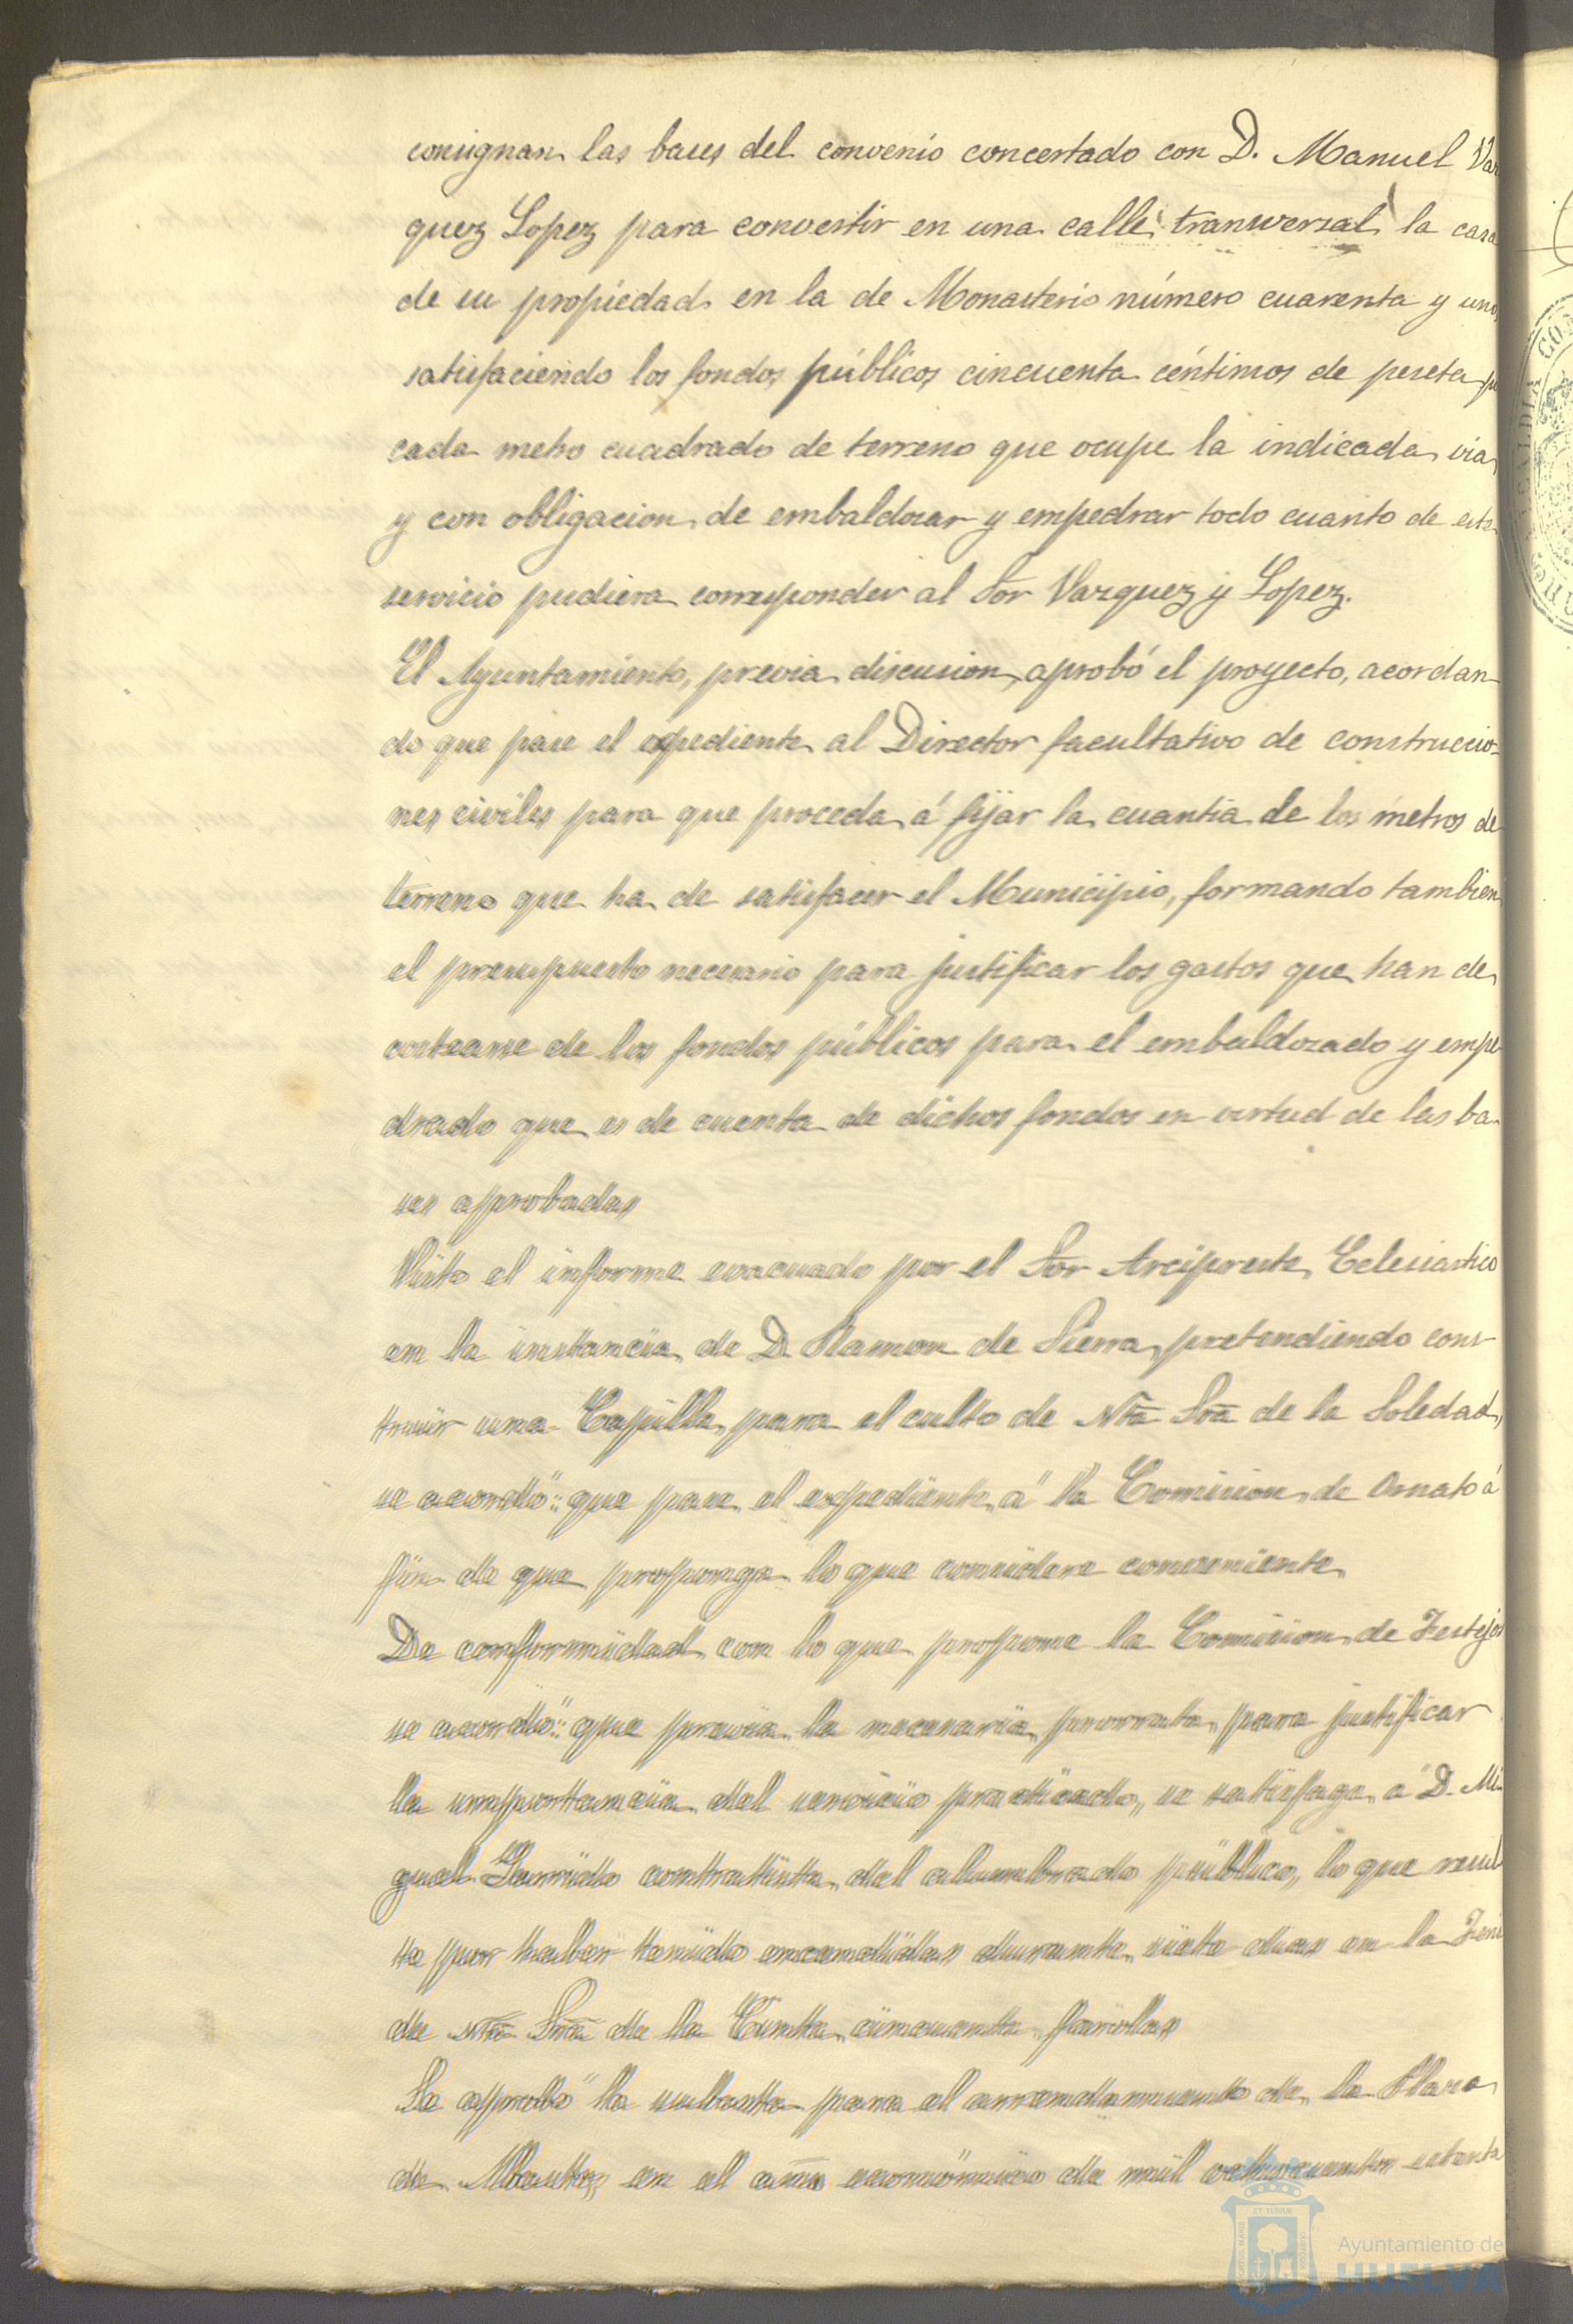 consignan las bases del convenio concertado con D. Manuel Vaz
quez Lopez para convertir en una calle transversal la casa
de su propiedad en la de Monasterio número cuarenta y uno,
satisfaciendo los fondos públicos cincuenta céntimos de peseta po
cada metro cuadrado de terreno que ocupe la indicada via,
y con obligacion de embaldosar y empedrar todo cuanto de este
servicio pudiera corresponder al Sor Vazquez y Lopez.
El Ayuntamiento, previa discusion, aprobó el proyecto, acordan-
do que pase el expediente al Director facultativo de construccio-
nes civiles para que proceda á fijar la cuantia de los metros de
terreno que ha de satisfacer el Municipio, formando tambien
el presupuesto necesario para justificar los gastos que han de
costearse de los fondos públicos para el embaldozado y empe
drado que es de cuenta de dichos fondos en virtud de las ba-
ses aprobadas
Visto el informe evacuado por el Sor Arcipreste Eclesiastico
en la instancia de D. Ramon de Sierra, pretendiendo cons-
truir una Capilla para el culto de Ntra Sra de la Soledad,
se acordó: que pase el expediente á la Comision de Ornato á
fin de que proponga lo que considere conveniente
De conformidad con lo que propone la Comision de Festejos
se acordó: que previa la necesaria prorrata para justificar
la importancia del servicio practicado, se satisfaga á D. Mi-
guel Garrido contratista del alumbrado público, lo que resul
te por haber tenido encendidas durante siete dias en la
de Ntra Sra de la Cinta cincuenta farolas
Se aprobó la subasta para el arrendamiento de la Plaza
de Abastos en el año económico de mil ochocientos setenta
Ayuntamiento de
HUELVA